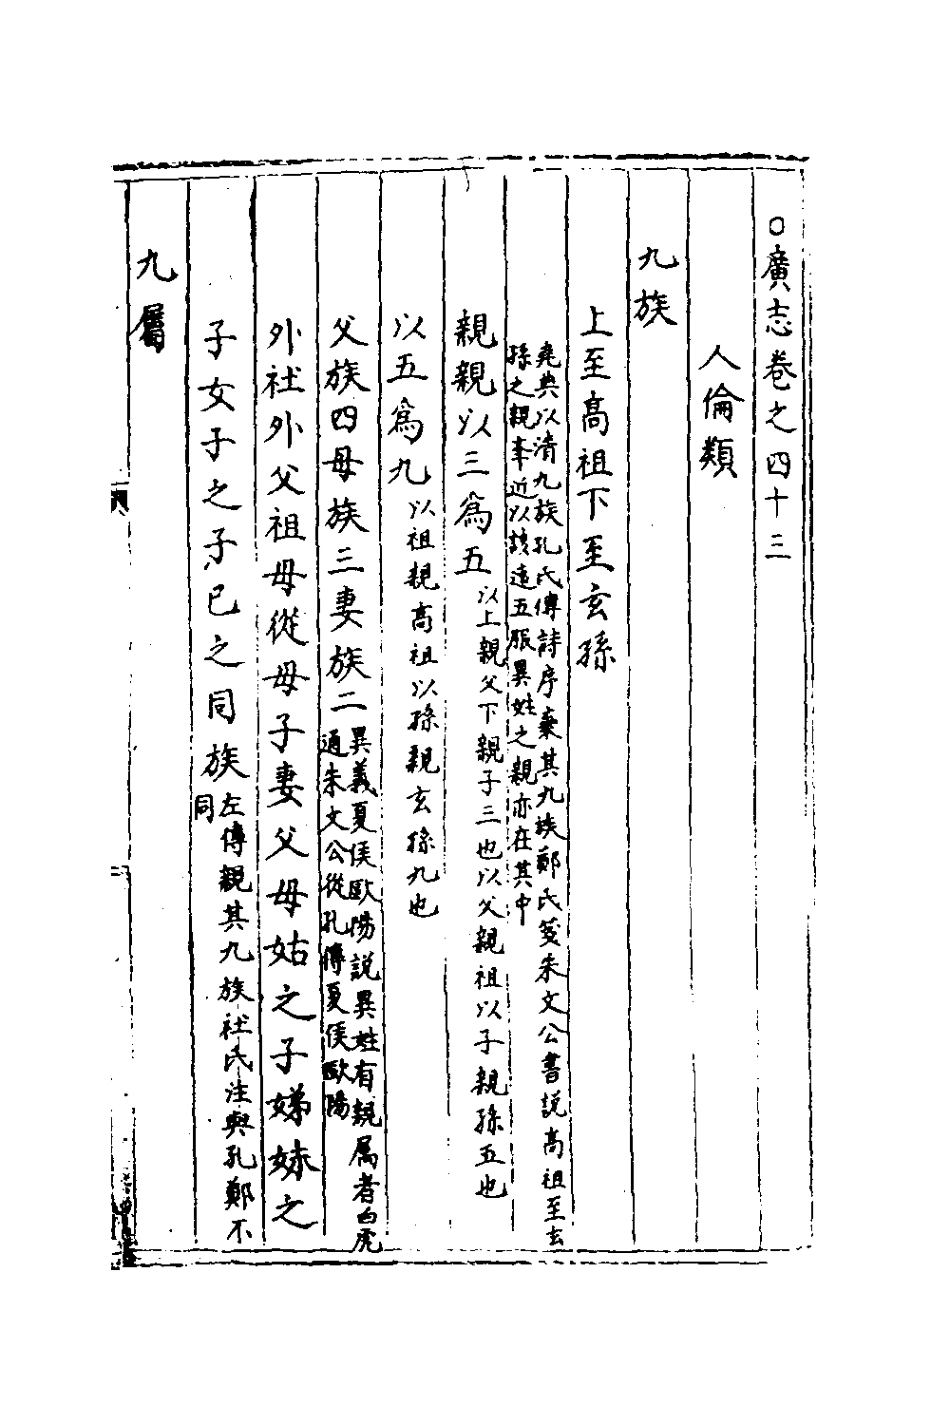 ○廣志卷之四十三
人倫類
九族
上至高祖下至玄孫
堯典以清九族孔氏傳詩序棄其九族鄭氏箋朱文公書說高祖至玄
孫之親舉近以該遠五服異姓之親亦在其中
親親以三爲五
以上親父下親子三也以父親祖以子親孫五也
以五爲九
以祖親高祖以孫親玄孫九也
父族四母族三妻族二
異義夏侯歐陽説異姓有親属者白虎
通朱文公從孔傳夏侯歐陽
外社外父祖母從母子妻父母姑之子娣妹之
子女子之子已之同族
左傳親其九族社氏注與孔鄭不
同
九屬